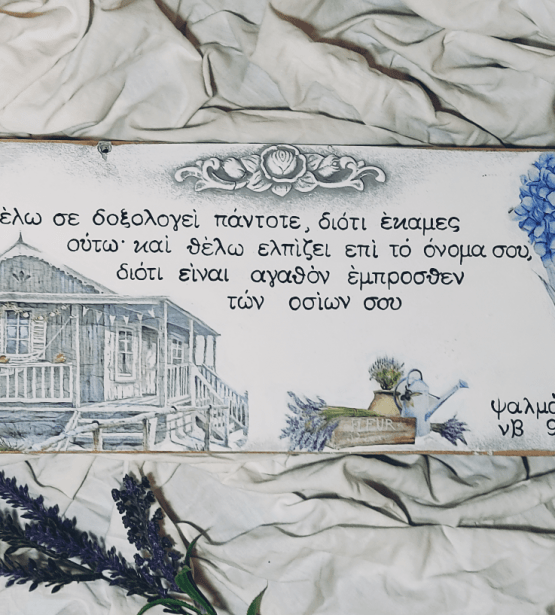 έλω σε δοξολογεὶ πάντοτε, διότι ὲκαμες
ούτω· καὶ θὲλω ελπὶζει επὶ τὸ όνομα σου,
διότι εὶναι αγαθὸν ὲμπροσθεν
τών οσὶων σου
FLEUR
ψαλμὸ
νβ 9